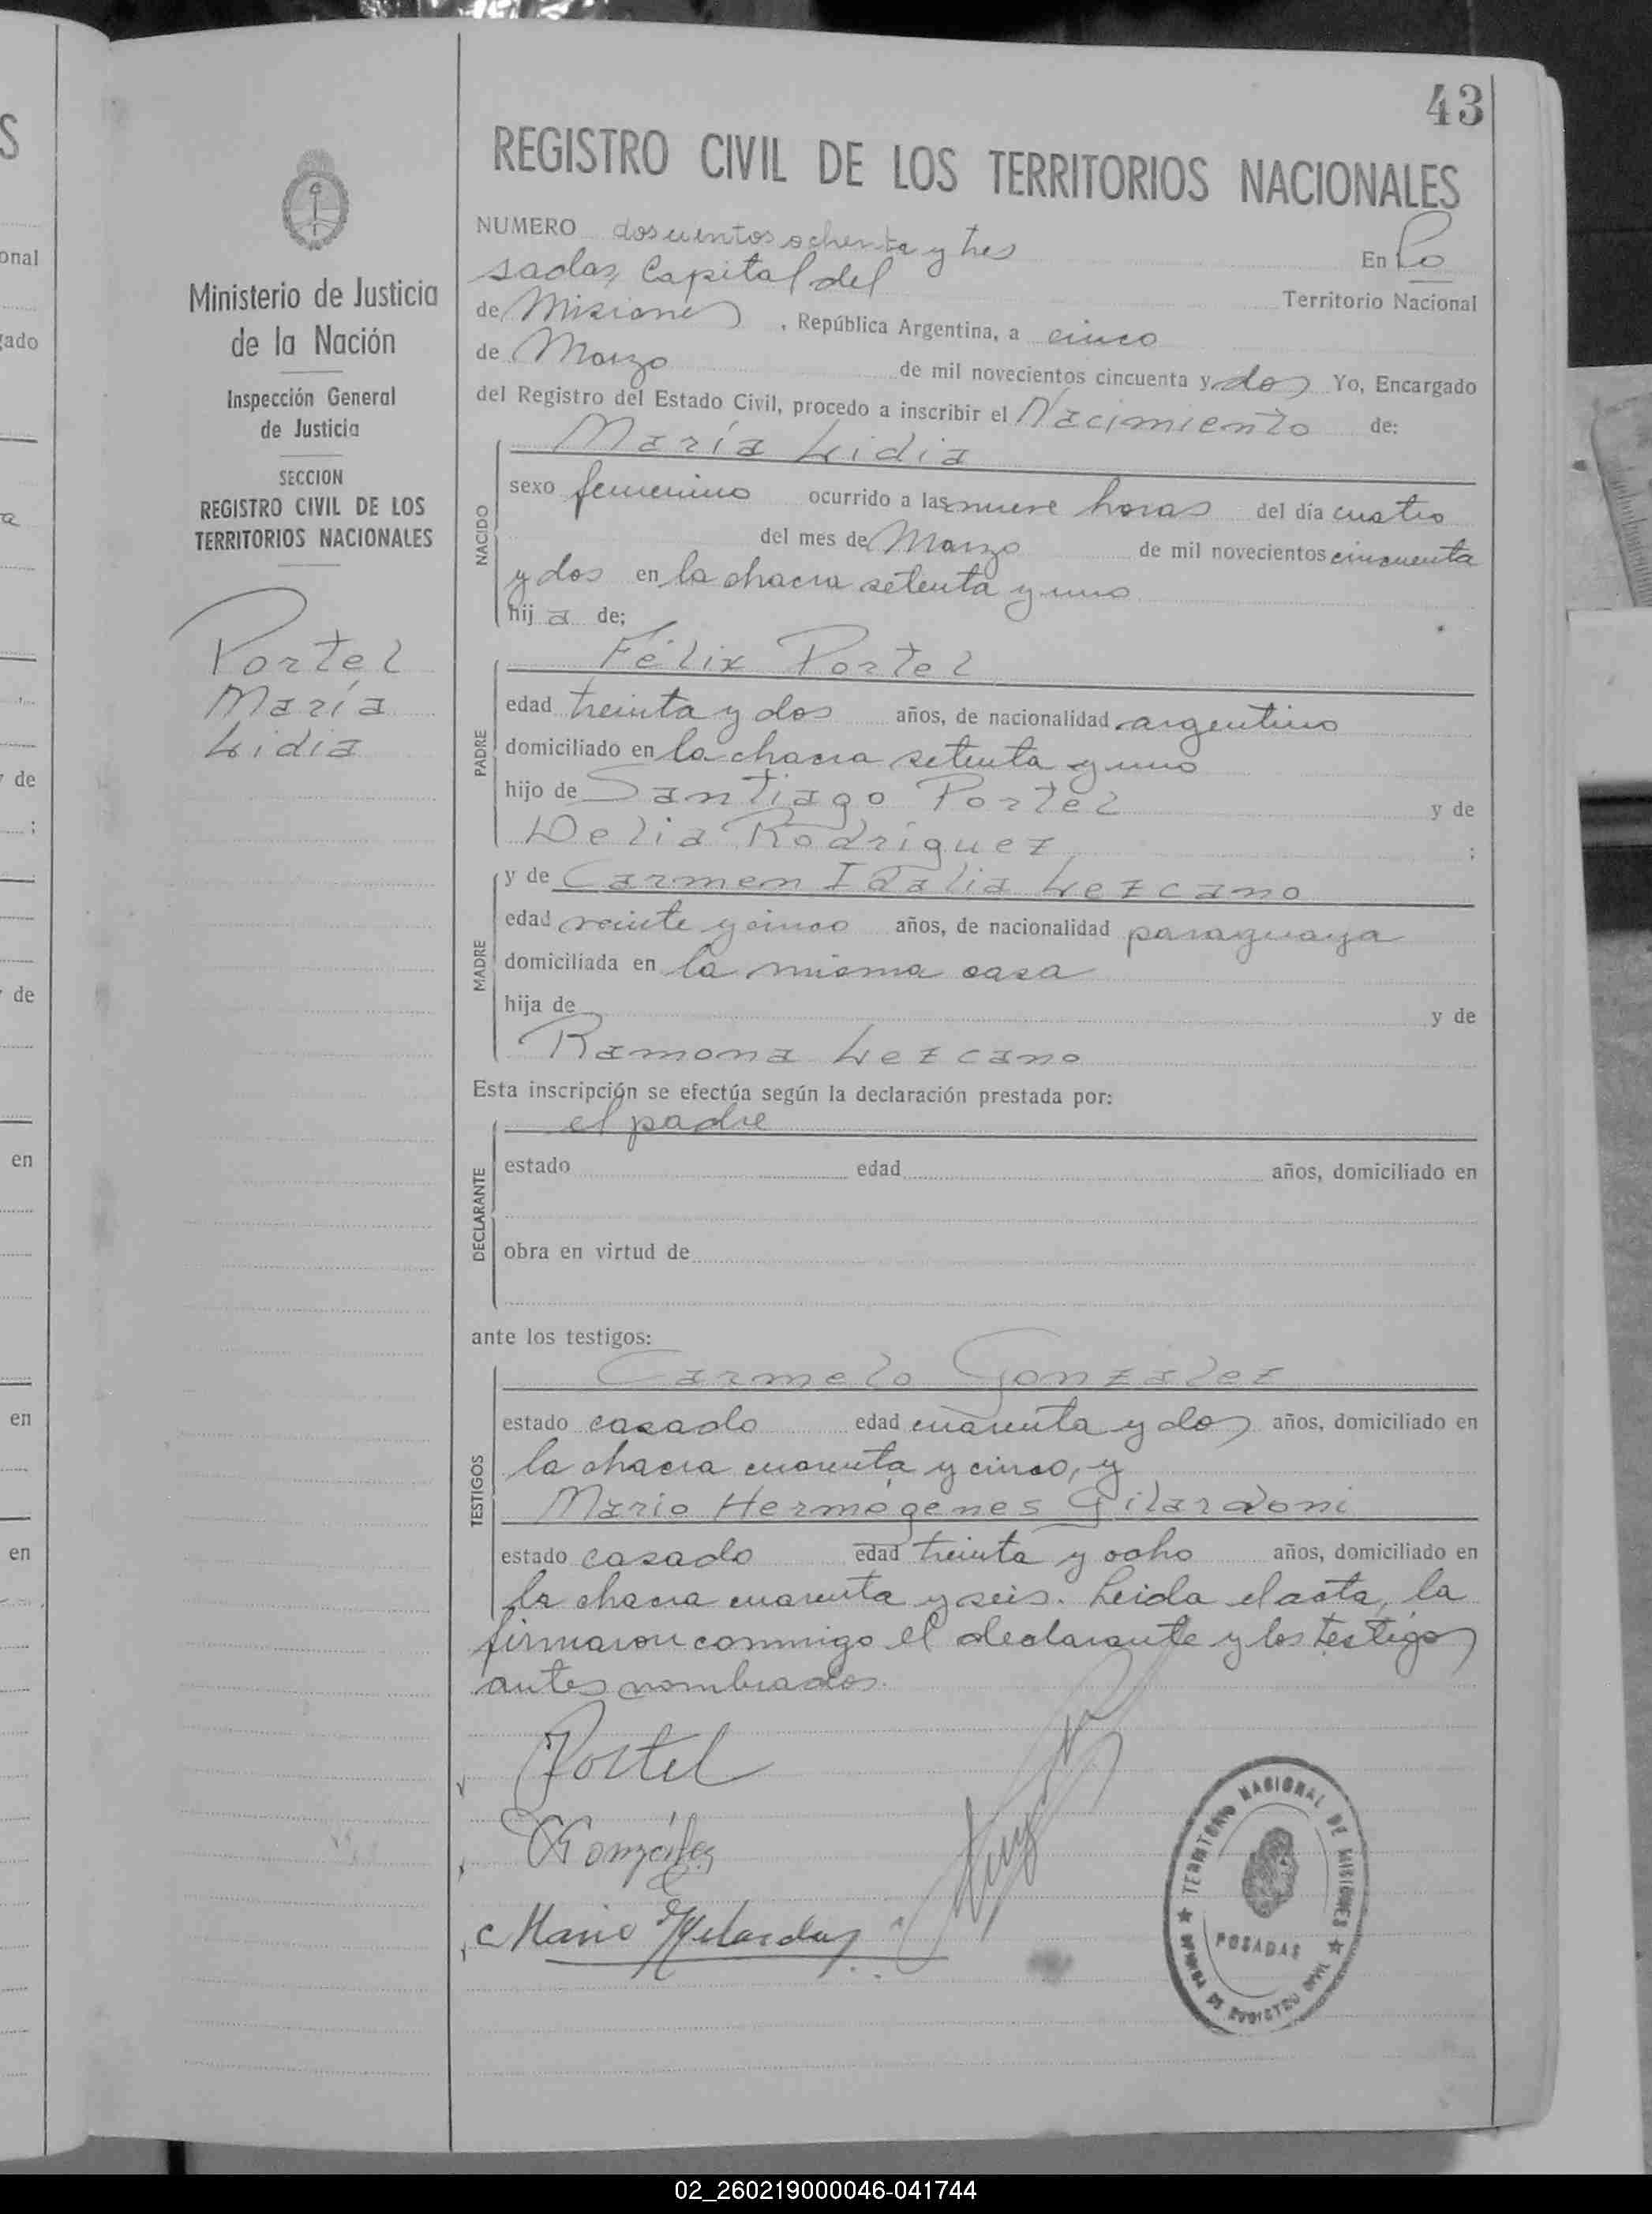 43
REGISTRO CIVIL DE LOS TERRITORIOS NACIONALES
Ministerio de Justicia
de la Nación
Inspección General
de Justicia
SECCION
REGISTRO CIVIL DE LOS
TERRITORIOS NACIONALES
Portel
María
Lidia
NUMERO doscientos ochenta y tres En Po
sadas, Capital del Territorio Nacional
de Misiones, República Argentina, a cinco
de Marzo de mil novecientos cincuenta y dos Yo, Encargado
del Registro del Estado Civil, procedo a inscribir el Nacimiento de:
NACIDO
María Lidia
sexo femenino ocurrido a las nueve horas del día cuatro
del mes de Marzo de mil novecientos cincuenta
y dos en la chacra setenta y uno
hij a de;
PADRE
Félix Portel
edad treinta y dos años, de nacionalidad argentino
domiciliado en la chacra setenta y uno
hijo de Santiago Portel y de
Delia Rodríguez ;
MADRE
y de Carmen Idalia Lezcano
edad veinte y cinco años, de nacionalidad paraguaya
domiciliada en la misma casa
hija de y de
Ramona Lezcano
Esta inscripción se efectúa según la declaración prestada por:
DECLARANTE
el padre
estado edad años, domiciliado en
obra en virtud de
ante los testigos:
TESTIGOS
Carmelo Gonzalez
estado casado edad cuarenta y dos años, domiciliado en
la chacra cuarenta y cinco, y
Mario Hermógenes Gilardoni
estado casado edad treinta y ocho años, domiciliado en
la chacra cuarenta y seis. Leida el acta, la
firmaron conmigo el declarante y los testigos
antes nombrados.
Portel
González
Mario
TERRITORIO NACIONAL DE MISIONES
POSADAS
DE REGISTRO CIVIL
onal
gado
a
de
;
de
en
en
en
02_260219000046-041744